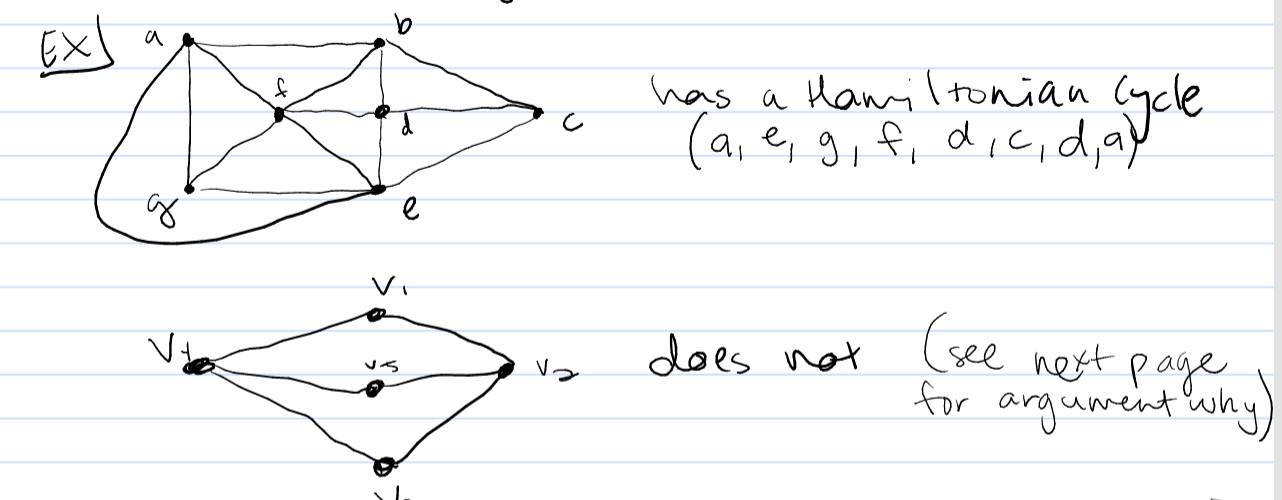 EX)
a
b
f
d
c
g
e
has a Hamiltonian Cycle
(a, e, g, f, d, c, d, a)
V1
V4
V5
V2
does not (see next page
for argument why)